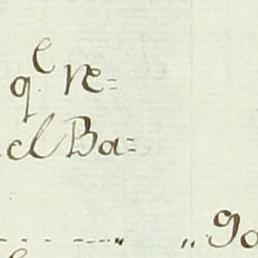 q.e re=
el Ba=
------„ „ 90